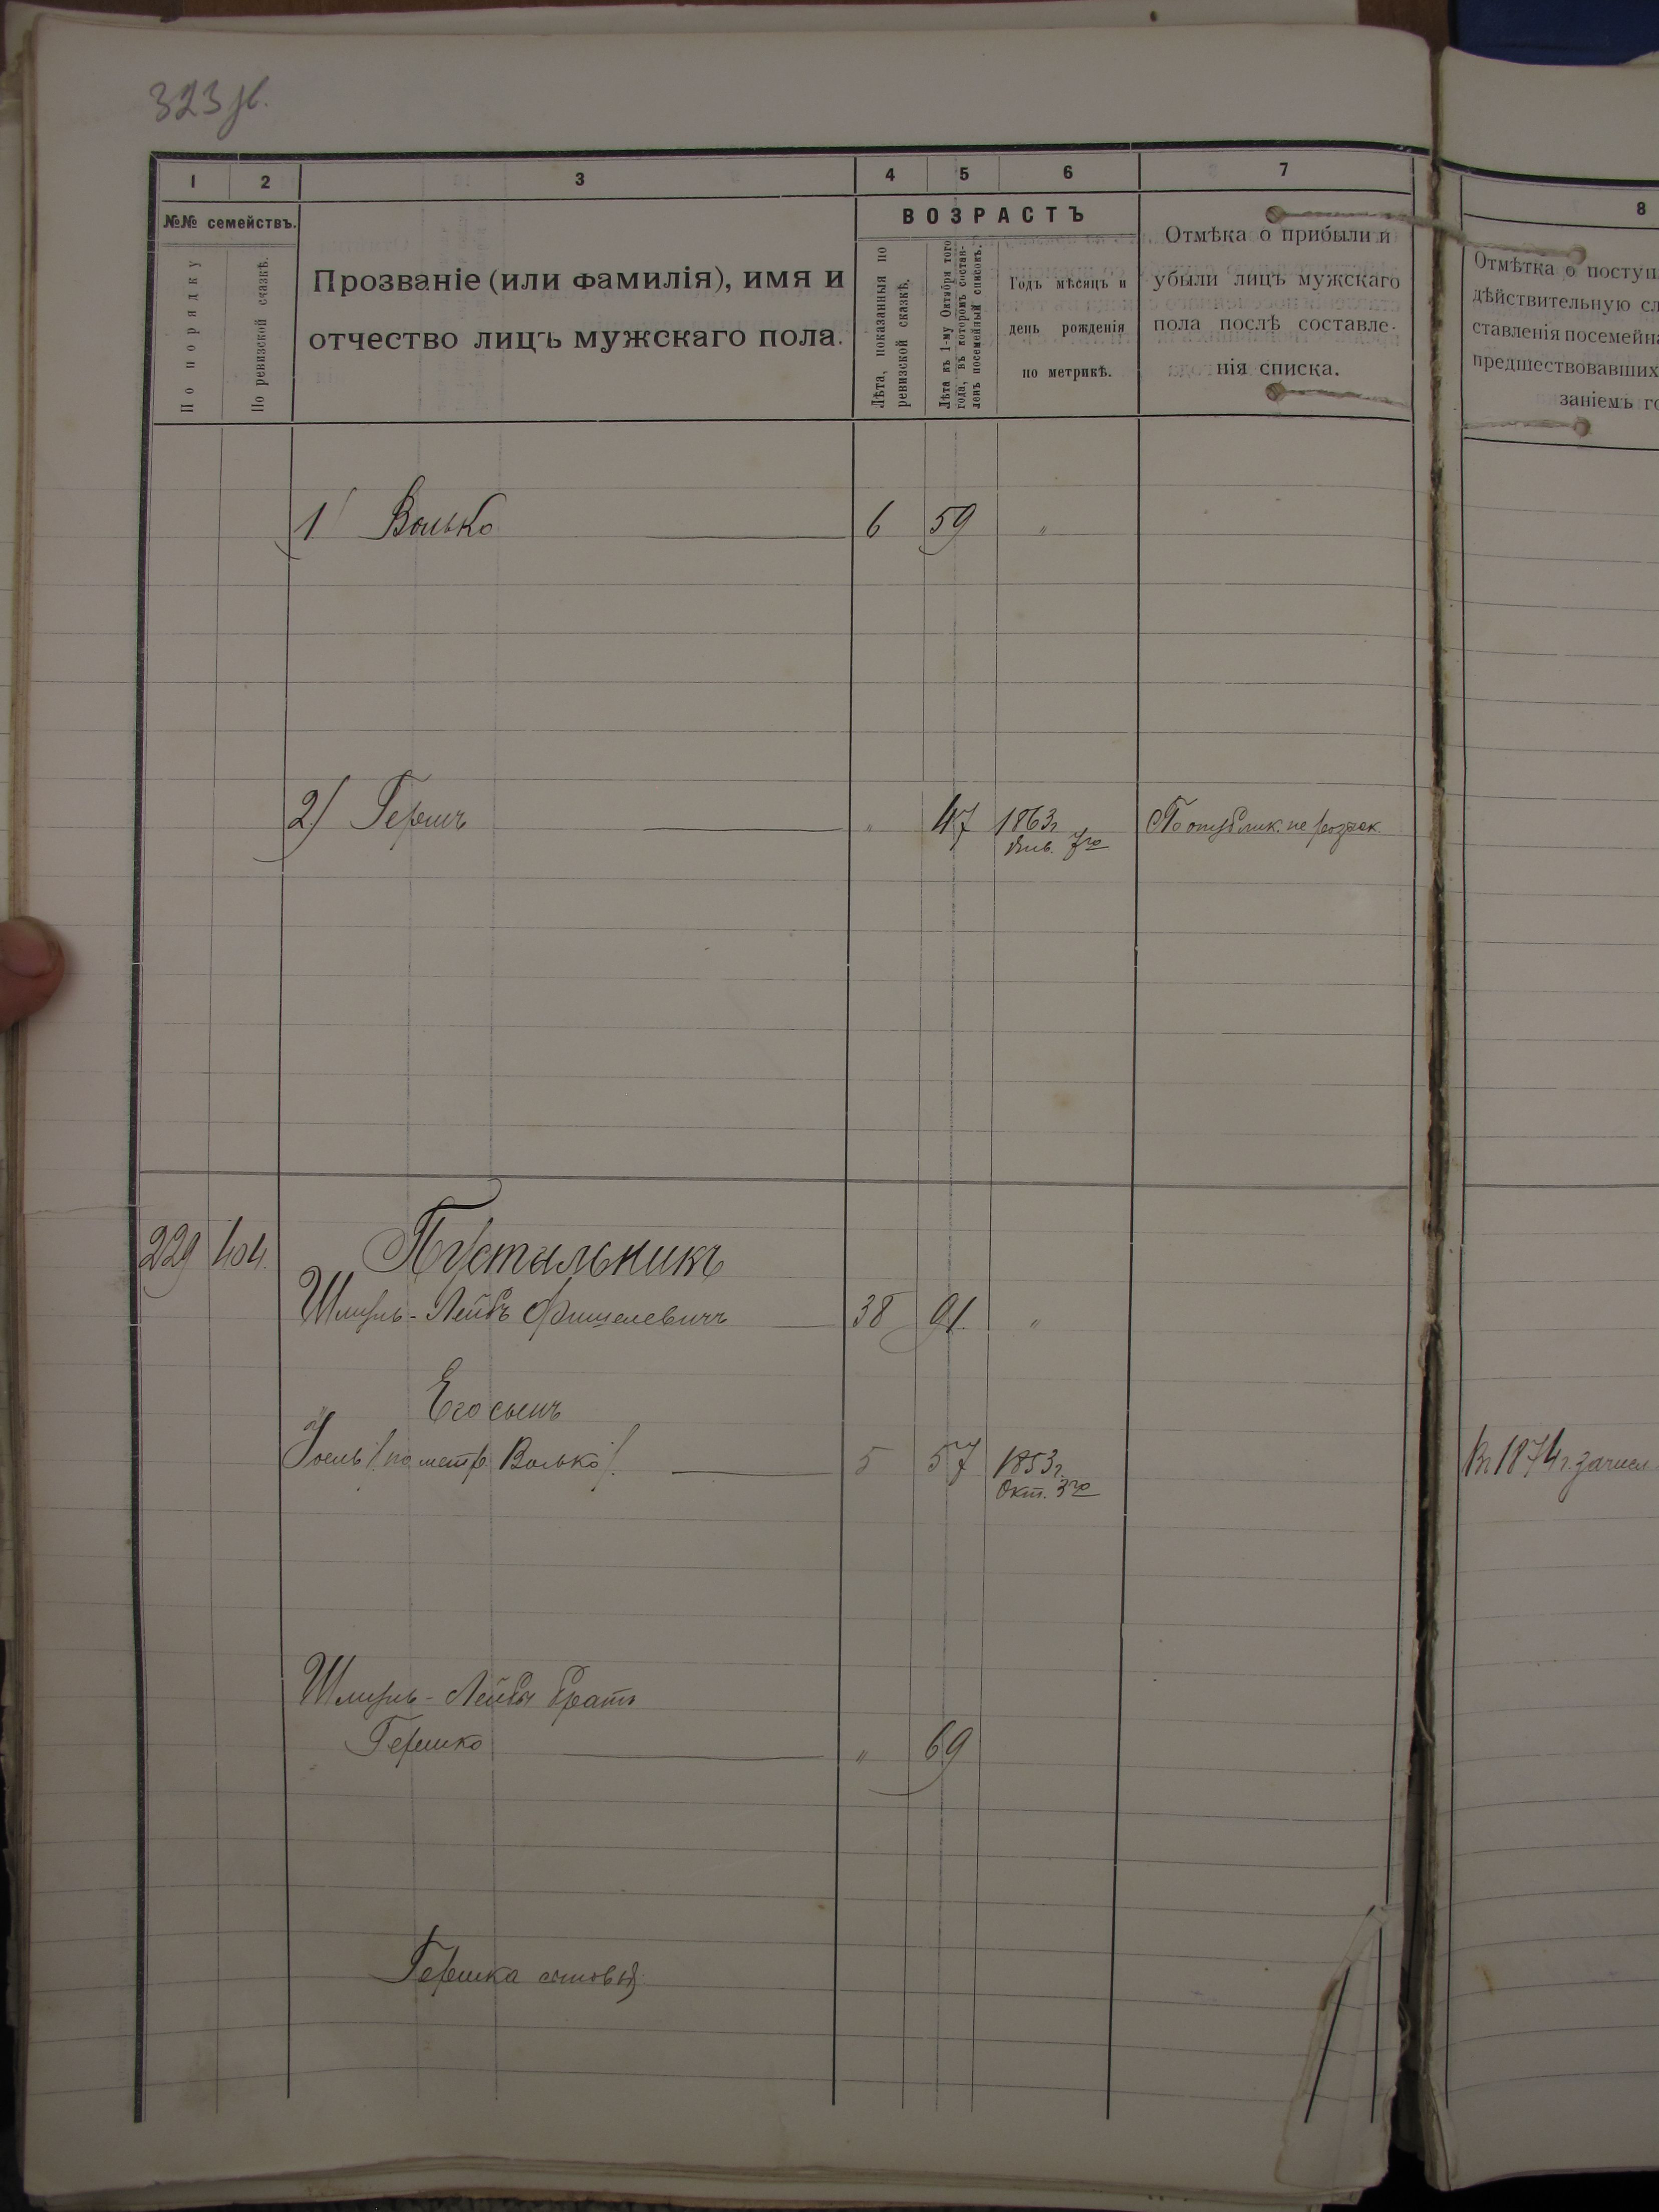 323 об.
1 2 3 4 5 6 7
№№ семействъ.
По порядку
По ревизской сказкѣ.
Прозваніе (или фамилія), имя и
отчество лицъ мужскаго пола.
ВОЗРАСТЪ
Лѣта, показанныя по
ревизской сказкѣ.
Лѣта къ 1-му Октября того
года, въ которомъ состав-
ленъ посемейный списокъ.
Годъ мѣсяцъ и
день рожденія
по метрикѣ.
Отмѣка о прибыли и
убыли лицъ мужскаго
пола послѣ составле-
нія списка.
8
Отмѣтка о поступ
дѣйствительную сл
ставленія посемейна
предшествовавшихъ
заніемъ го
1) Волько 6 59 „
2) Гершъ „ 47 1863г. По опублик. не розыск.
Янв. 7го
229 404. Пустыльникъ
Шмуль-Лейбъ Фишелевичъ 38 91. „
Его сынъ
Іоель /по метр. Волько/. 5 57 1853г. Въ 1874г. зачисл
Окт. 3го
Шмуль-Лейбы братъ
Гершко „ 69
Гершка сыновья: